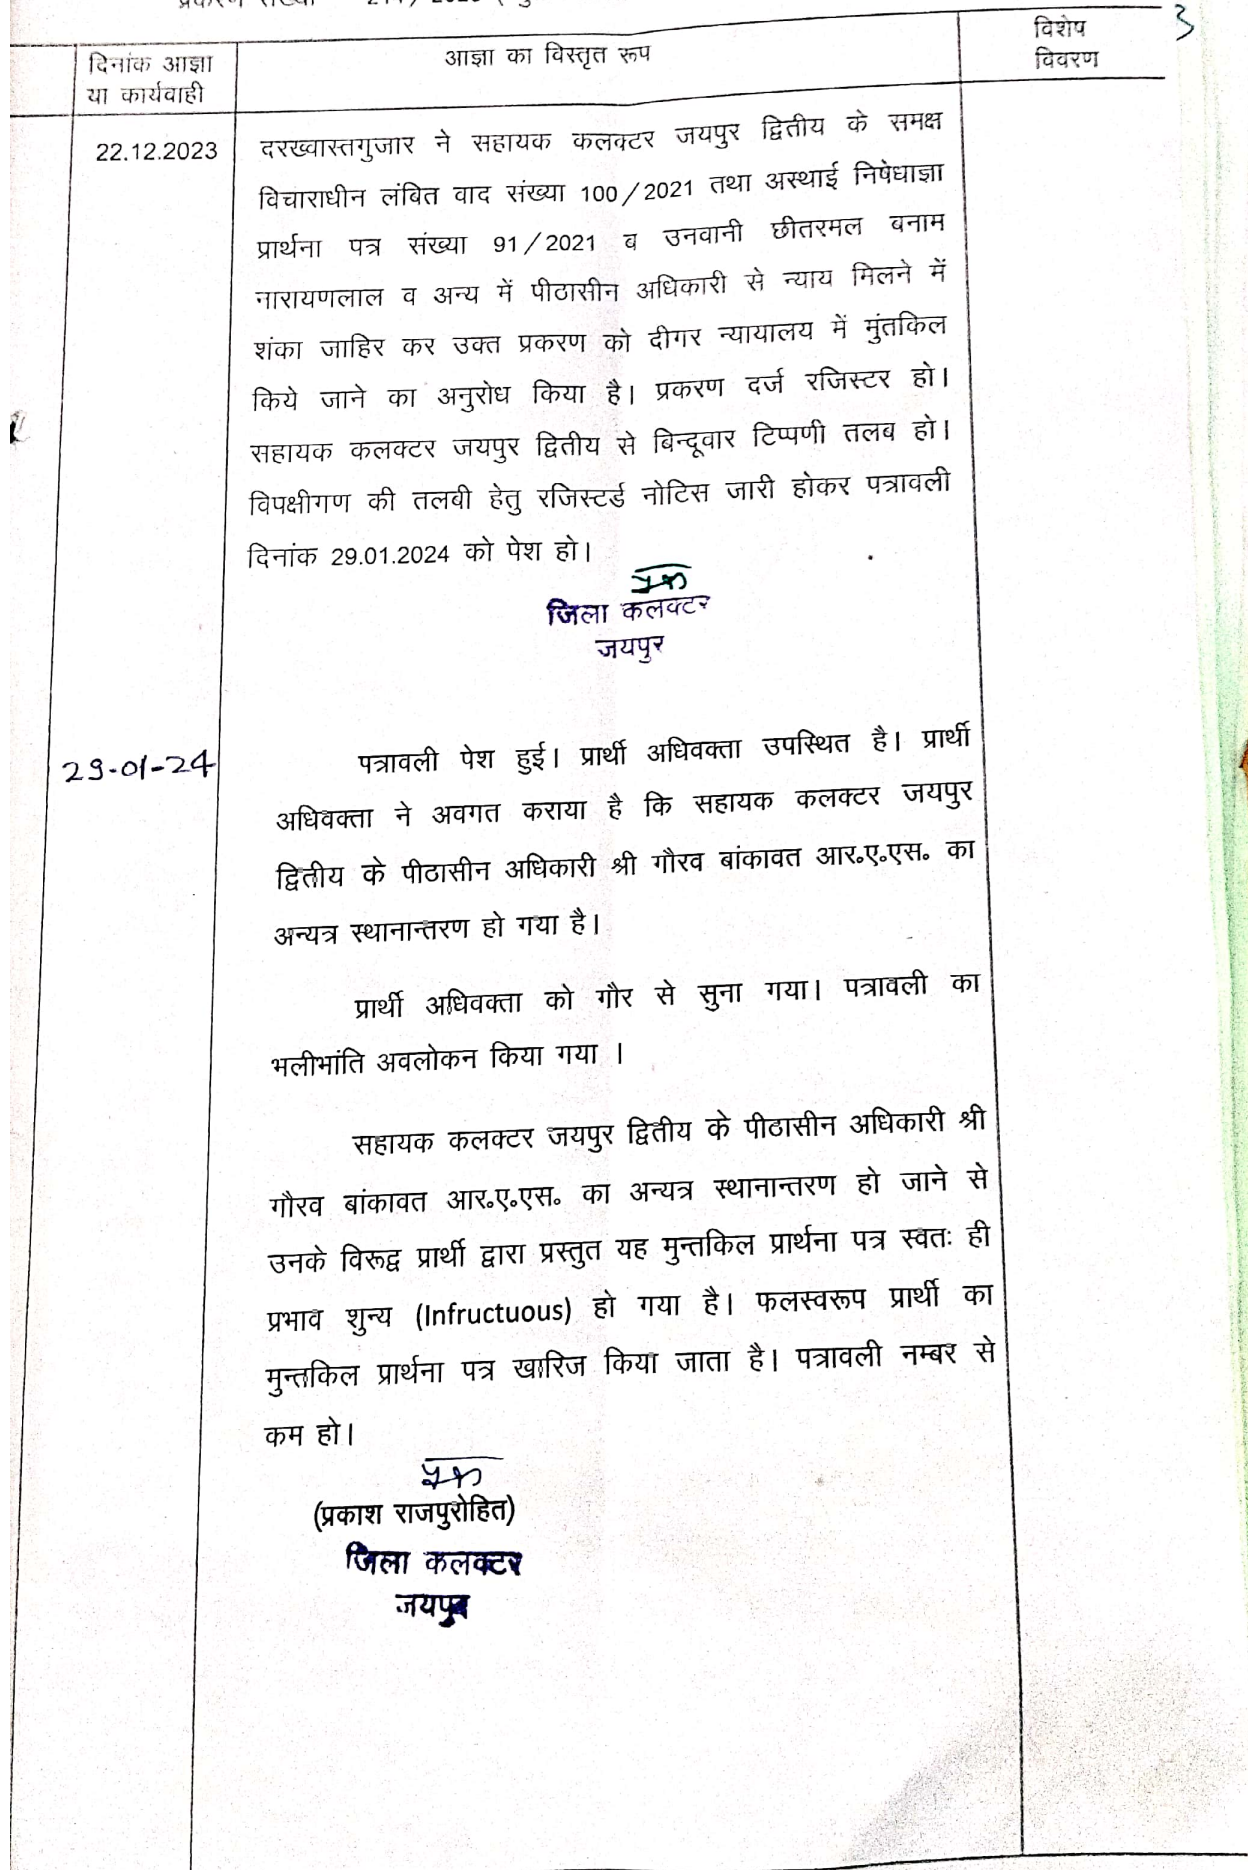 प्रकरण संख्या
3
दिनांक आज्ञा
या कार्यवाही
आज्ञा का विस्तृत रूप
विशेष
विवरण
22.12.2023
दरख्वास्तगुजार ने सहायक कलक्टर जयपुर द्वितीय के समक्ष
विचाराधीन लंबित वाद संख्या 100/2021 तथा अस्थाई निषेधाज्ञा
प्रार्थना पत्र संख्या 91/2021 ब उनवानी छीतरमल बनाम
नारायणलाल व अन्य में पीठासीन अधिकारी से न्याय मिलने में
शंका जाहिर कर उक्त प्रकरण को दीगर न्यायालय में मुंतकिल
किये जाने का अनुरोध किया है। प्रकरण दर्ज रजिस्टर हो।
सहायक कलक्टर जयपुर द्वितीय से बिन्दूवार टिप्पणी तलब हो।
विपक्षीगण की तलबी हेतु रजिस्टर्ड नोटिस जारी होकर पत्रावली
दिनांक 29.01.2024 को पेश हो।
जिला कलक्टर
जयपुर
29-01-24
पत्रावली पेश हुई। प्रार्थी अधिवक्ता उपस्थित है। प्रार्थी
अधिवक्ता ने अवगत कराया है कि सहायक कलक्टर जयपुर
द्वितीय के पीठासीन अधिकारी श्री गौरव बांकावत आर॰ए॰एस॰ का
अन्यत्र स्थानान्तरण हो गया है।
प्रार्थी अधिवक्ता को गौर से सुना गया। पत्रावली का
भलीभांति अवलोकन किया गया ।
सहायक कलक्टर जयपुर द्वितीय के पीठासीन अधिकारी श्री
गौरव बांकावत आर॰ए॰एस॰ का अन्यत्र स्थानान्तरण हो जाने से
उनके विरूद्व प्रार्थी द्वारा प्रस्तुत यह मुन्तकिल प्रार्थना पत्र स्वतः ही
प्रभाव शुन्य (Infructuous) हो गया है। फलस्वरूप प्रार्थी का
मुन्तकिल प्रार्थना पत्र खारिज किया जाता है। पत्रावली नम्बर से
कम हो।
(प्रकाश राजपुरोहित)
जिला कलक्टर
जयपुर